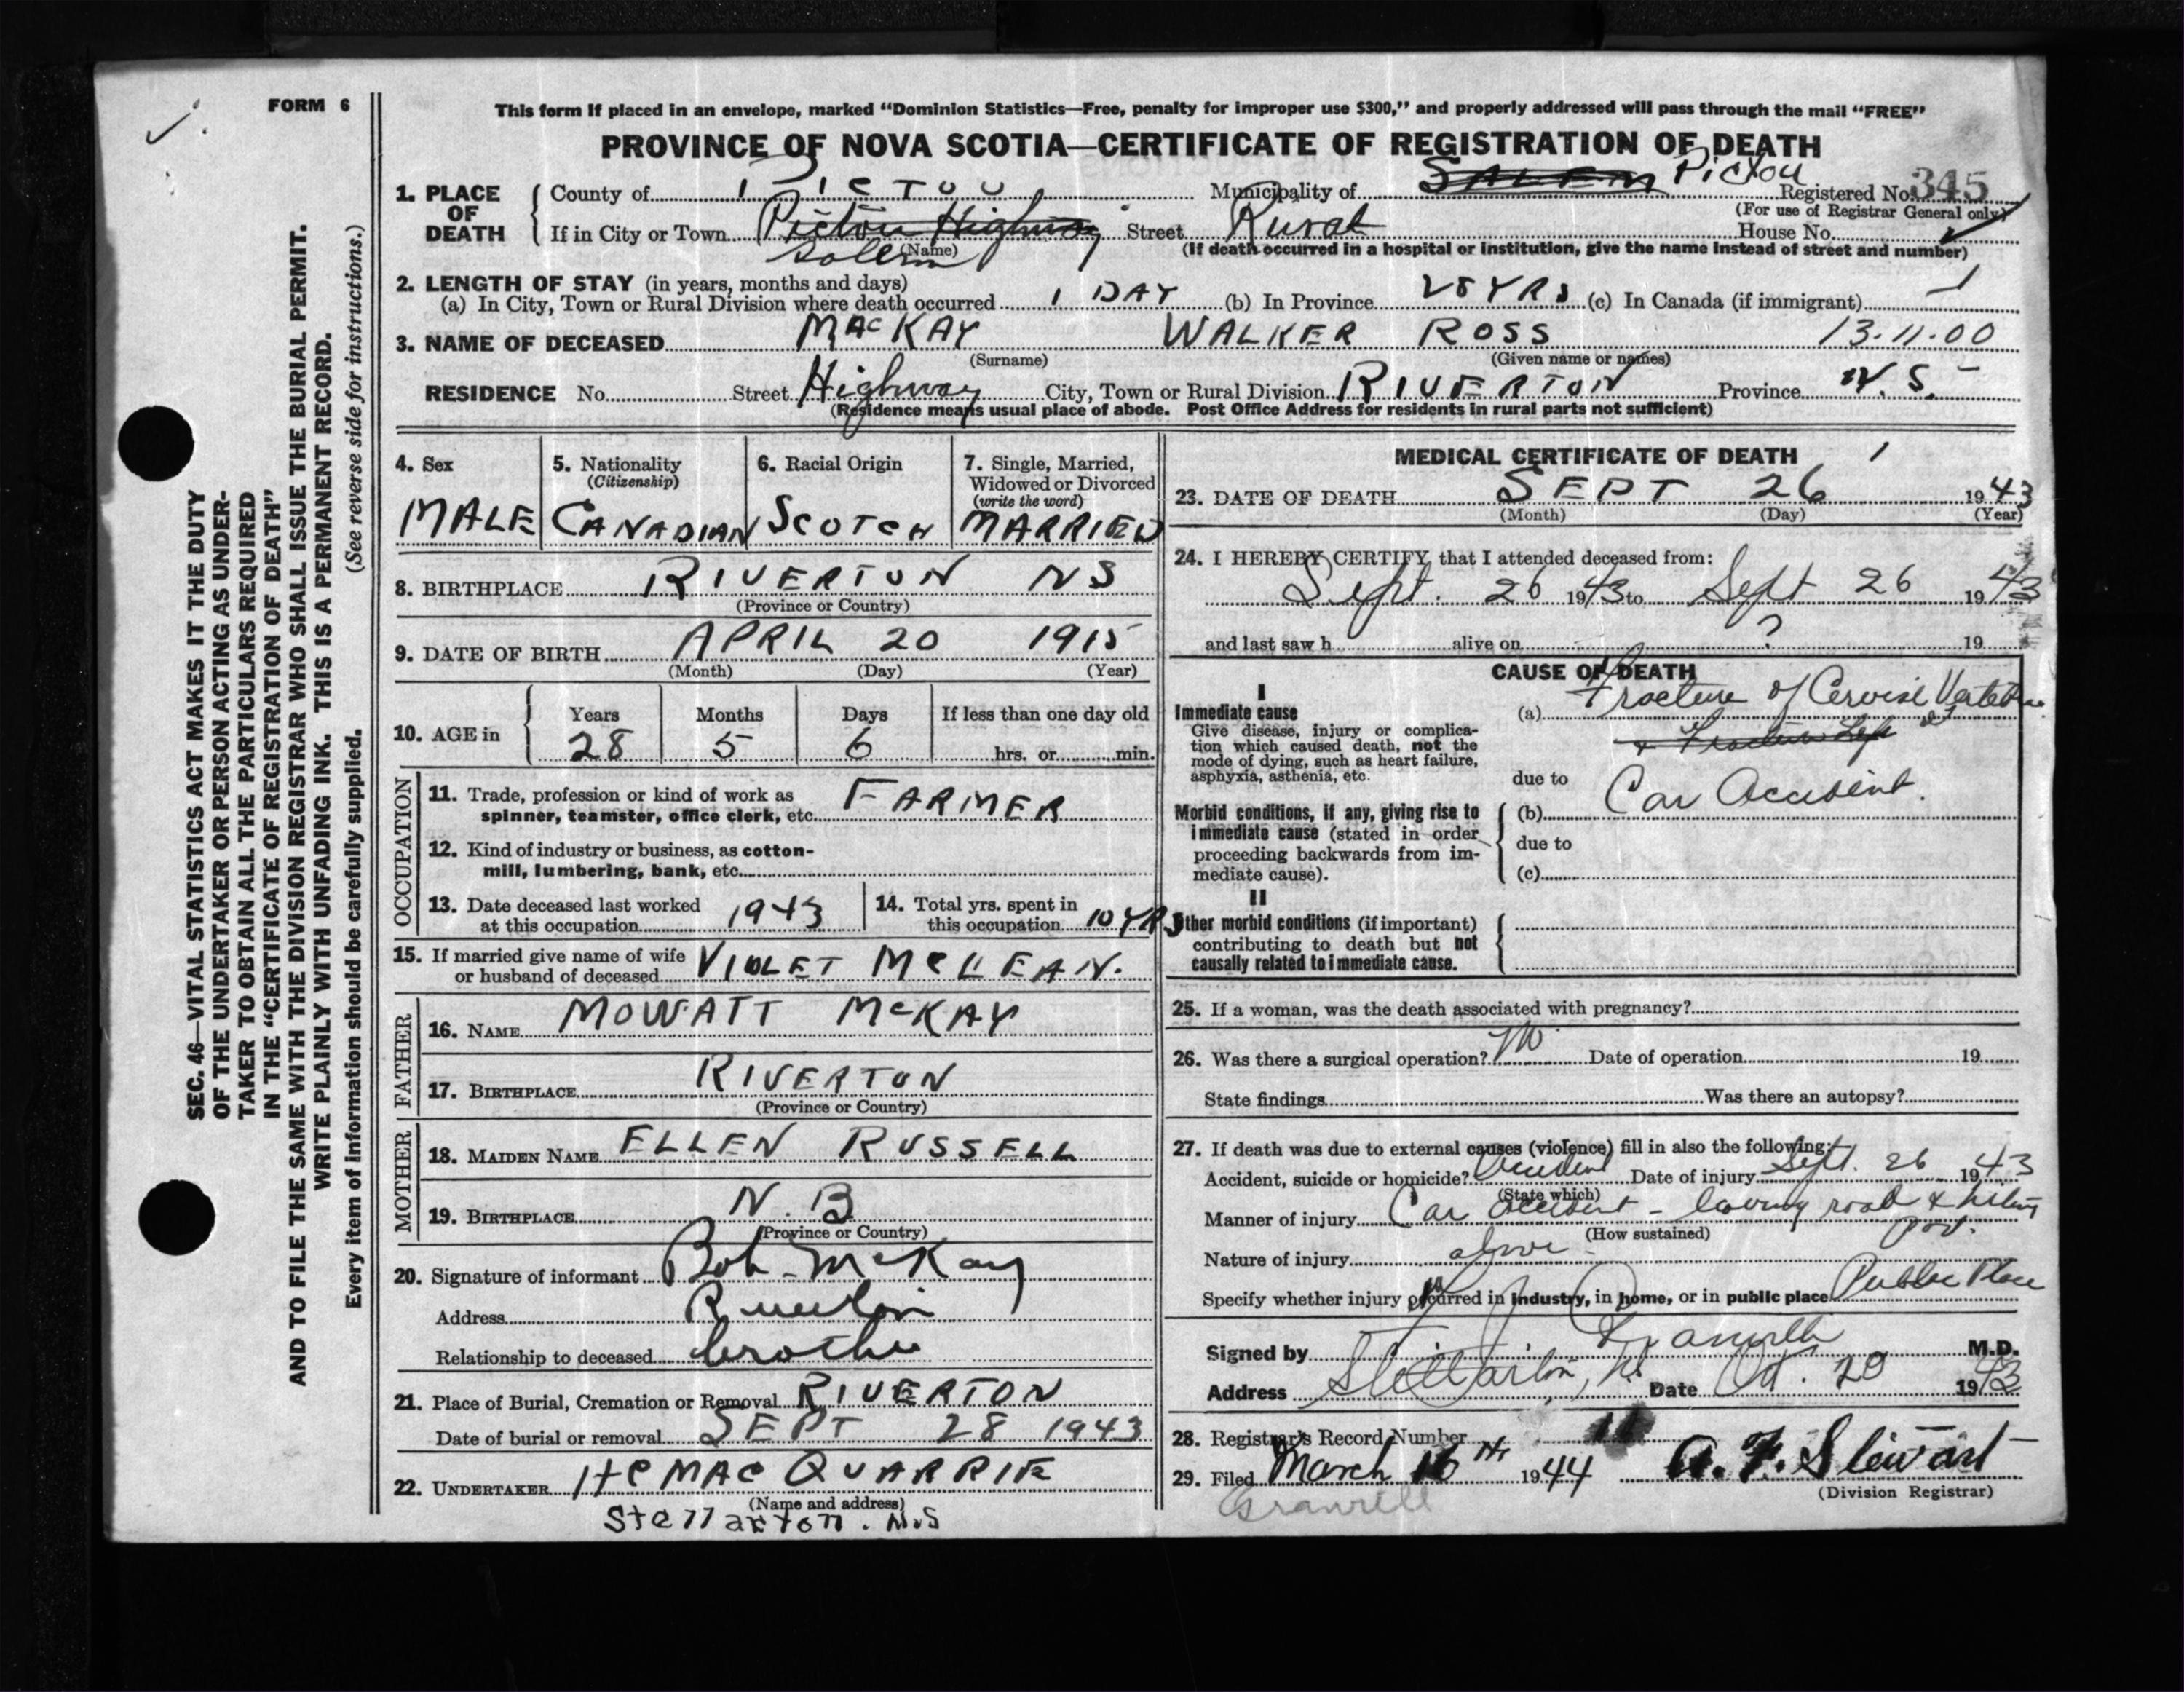 FORM 6
This form if placed in an envelope, marked "Dominion Statistics—Free, penalty for improper use $300," and properly addressed will pass through the mail "FREE"
PROVINCE OF NOVA SCOTIA—CERTIFICATE OF REGISTRATION OF DEATH
1. PLACE OF DEATH County of PICTOU Municipality of SALEM Pictou Registered No. 345
(For use of Registrar General only)
If in City or Town Pictou Highway Street Rural House No.
Salem (Name) (If death occurred in a hospital or institution, give the name instead of street and number)
2. LENGTH OF STAY (in years, months and days)
(a) In City, Town or Rural Division where death occurred 1 DAY (b) In Province 28 YRS (c) In Canada (if immigrant)
3. NAME OF DECEASED MACKAY WALKER ROSS 13.11.00
(Surname) (Given name or names)
RESIDENCE No. Street Highway City, Town or Rural Division RIVERTON Province N.S.
(Residence means usual place of abode. Post Office Address for residents in rural parts not sufficient)
4. Sex MALE
5. Nationality (Citizenship) CANADIAN
6. Racial Origin SCOTCH
7. Single, Married, Widowed or Divorced (write the word) MARRIED
8. BIRTHPLACE RIVERTON NS
(Province or Country)
9. DATE OF BIRTH APRIL 20 1915
(Month) (Day) (Year)
10. AGE in Years 28 Months 5 Days 6 If less than one day old hrs. or min.
OCCUPATION
11. Trade, profession or kind of work as spinner, teamster, office clerk, etc. FARMER
12. Kind of industry or business, as cotton-mill, lumbering, bank, etc.
13. Date deceased last worked at this occupation 1943
14. Total yrs. spent in this occupation 10 YRS
15. If married give name of wife or husband of deceased VIOLET McLEAN.
FATHER
16. NAME MOWATT McKAY
17. BIRTHPLACE RIVERTON
(Province or Country)
MOTHER
18. MAIDEN NAME ELLEN RUSSELL
19. BIRTHPLACE N.B
(Province or Country)
20. Signature of informant Bob McKay
Address Riverton
Relationship to deceased brother
21. Place of Burial, Cremation or Removal RIVERTON
Date of burial or removal SEPT 28 1943
22. UNDERTAKER HC MACQUARRIE
(Name and address)
Stellarton. N.S
MEDICAL CERTIFICATE OF DEATH
23. DATE OF DEATH SEPT 26 1943
(Month) (Day) (Year)
24. I HEREBY CERTIFY that I attended deceased from:
Sept. 26 1943 to Sept 26 1943
and last saw h alive on ? 19
CAUSE OF DEATH
I
Immediate cause
Give disease, injury or complication which caused death, not the mode of dying, such as heart failure, asphyxia, asthenia, etc.
(a) Fracture of Cervical Vertebrae
& Fracture Left
due to
Morbid conditions, if any, giving rise to immediate cause (stated in order proceeding backwards from immediate cause).
(b) Car Accident.
due to
(c)
II
Other morbid conditions (if important) contributing to death but not causally related to immediate cause.
25. If a woman, was the death associated with pregnancy?
26. Was there a surgical operation? No Date of operation 19
State findings Was there an autopsy?
27. If death was due to external causes (violence) fill in also the following:
Accident, suicide or homicide? Accident Date of injury Sept. 26 1943
(State which)
Manner of injury Car Accident - leaving road & hitting
(How sustained)
Nature of injury above
Specify whether injury occurred in industry, in home, or in public place Public Place
Signed by Granville M.D.
Address Stellarton, N.S. Date Oct. 20 1943
28. Registrar's Record Number 11
29. Filed March 16th 1944 A. F. Stewart
(Division Registrar)
SEC. 46—VITAL STATISTICS ACT MAKES IT THE DUTY
OF THE UNDERTAKER OR PERSON ACTING AS UNDER-
TAKER TO OBTAIN ALL THE PARTICULARS REQUIRED
IN THE "CERTIFICATE OF REGISTRATION OF DEATH"
AND TO FILE THE SAME WITH THE DIVISION REGISTRAR WHO SHALL ISSUE THE BURIAL PERMIT.
WRITE PLAINLY WITH UNFADING INK. THIS IS A PERMANENT RECORD.
Every item of information should be carefully supplied. (See reverse side for instructions.)